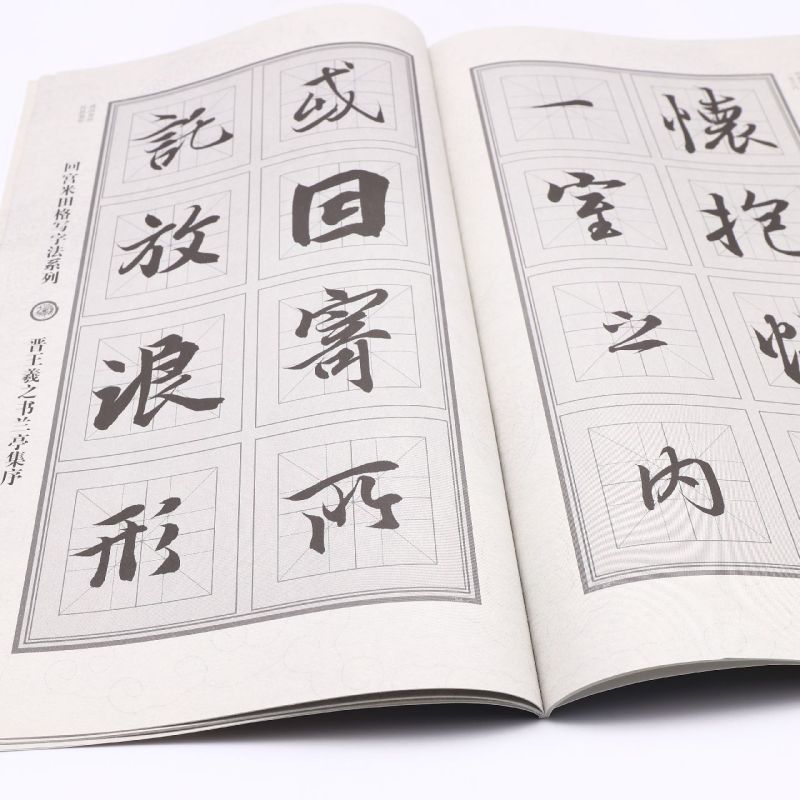 懷抱
一室之內
或因寄所
託放浪形
回宫米田格写字法系列
晋王羲之书兰亭集序